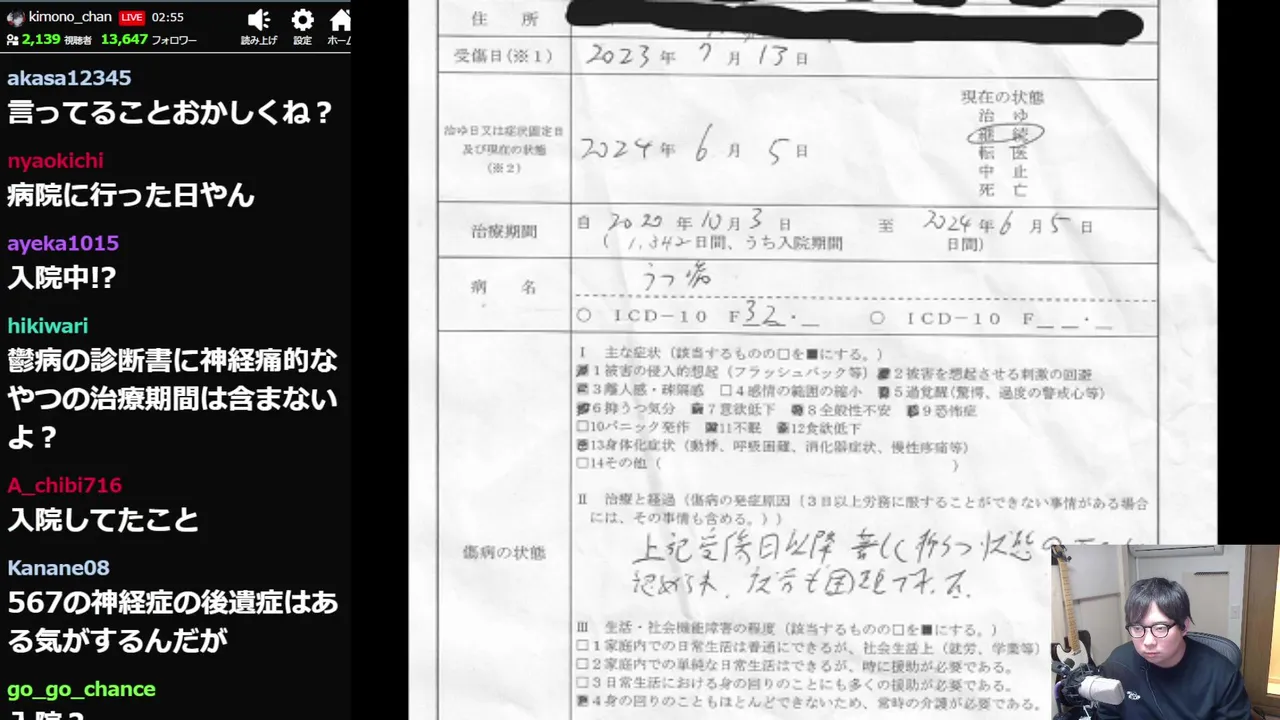 kimono_chan LIVE 02:55
2,139 視聴者 13,647 フォロワー
読み上げ 設定 ホーム
akasa12345
言ってることおかしくね？
nyaokichi
病院に行った日やん
ayeka1015
入院中!?
hikiwari
鬱病の診断書に神経痛的な
やつの治療期間は含まない
よ？
A_chibi716
入院してたこと
Kanane08
567の神経症の後遺症はあ
る気がするんだが
go_go_chance
入院？
住 所
受傷日(※１) 2023年 7月 13日
治ゆ日又は症状固定日
及び現在の状態
(※２)
2024年 6月 5日
現在の状態
治 ゆ
継 続
転 医
中 止
死 亡
治療期間
自 2020年10月3日 至 2024年6月5日
( 1,342日間、うち入院期間 日間)
病 名
うつ病
○ ＩＣＤ－１０ Ｆ32.＿ ○ ＩＣＤ－１０ Ｆ＿＿.＿
傷病の状態
Ⅰ 主な症状（該当するものの□を■にする。）
■１被害の侵入的想起（フラッシュバック等）■２被害を想起させる刺激の回避
■３離人感・疎隔感 □４感情の範囲の縮小 ■５過覚醒(驚愕、過度の警戒心等)
■６抑うつ気分 ■７意欲低下 ■８全般性不安 ■９恐怖症
□10パニック発作 ■11不眠 ■12食欲低下
■13身体化症状（動悸、呼吸困難、消化器症状、慢性疼痛等）
□14その他（ ）
Ⅱ 治療と経過（傷病の発症原因（３日以上労務に服することができない事情がある場合
には、その事情も含める。））
上記受傷日以降 著しく抑うつ状態の
認められ、
Ⅲ 生活・社会機能障害の程度（該当するものの□を■にする。）
□１家庭内での日常生活は普通にできるが、社会生活上（就労、学業等）
□２家庭内での単純な日常生活はできるが、時に援助が必要である。
□３日常生活における身の回りのことにも多くの援助が必要である。
■４身の回りのこともほとんどできないため、常時の介護が必要である。